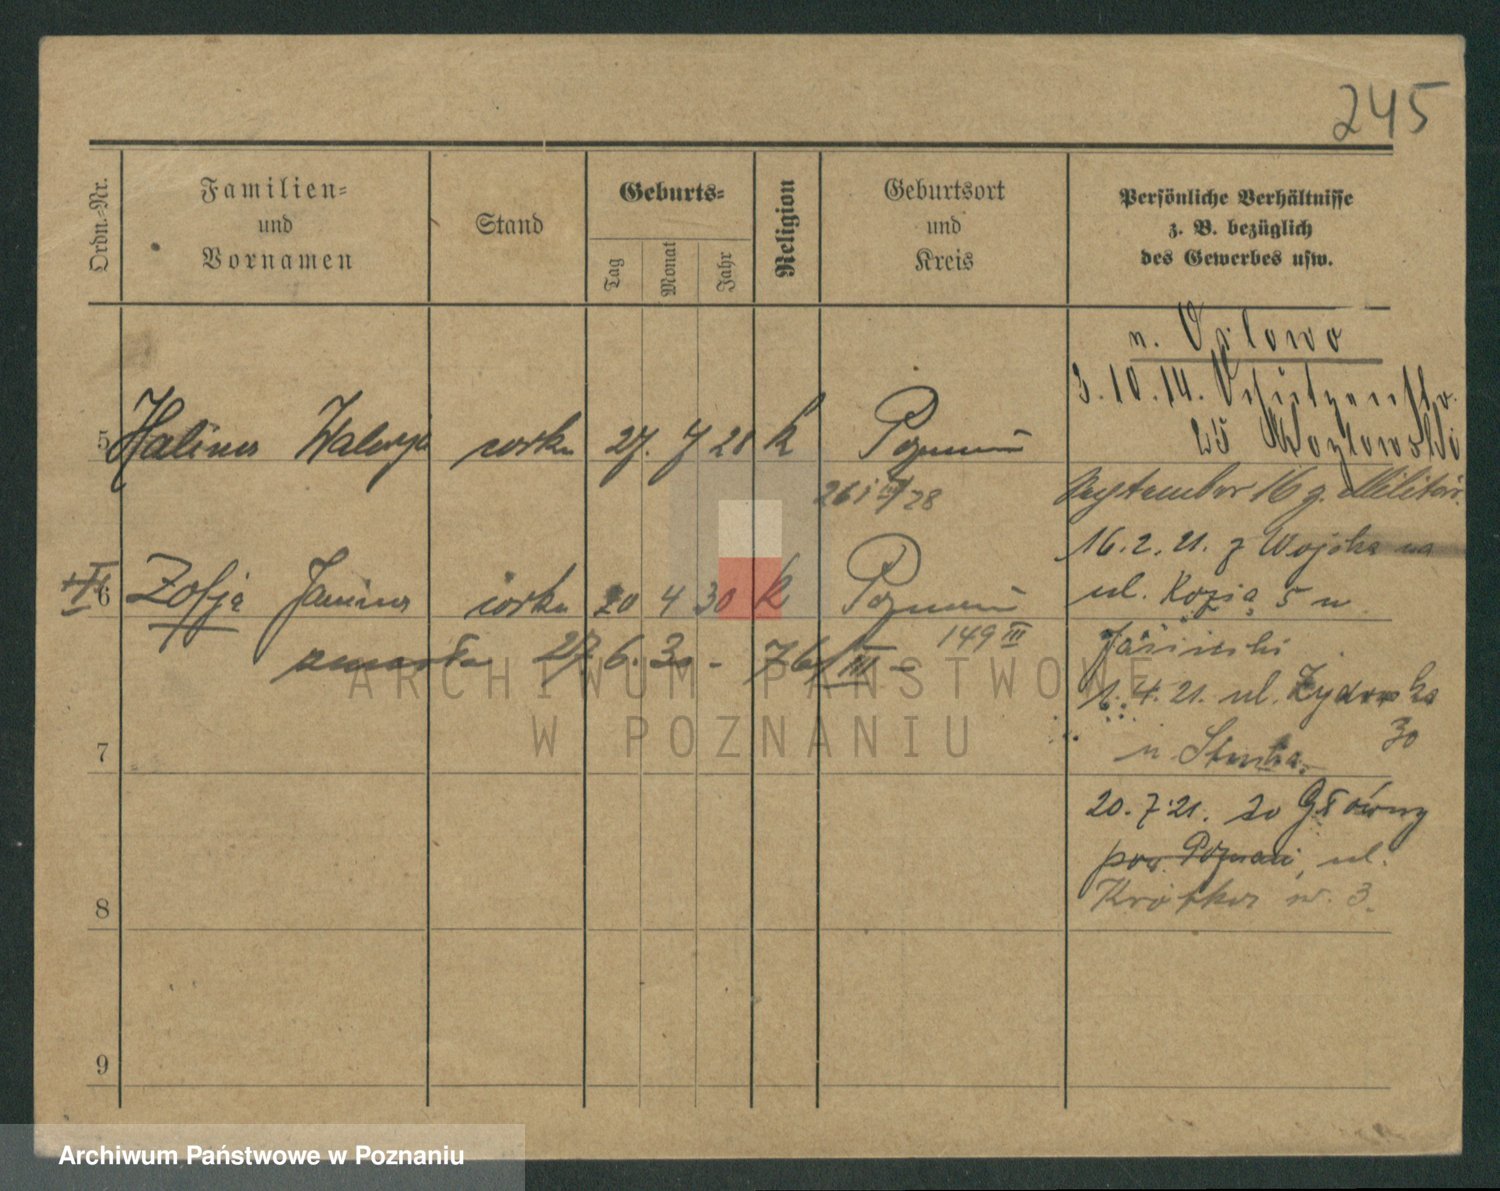 245
Ordn.-Nr.
Familien-
und
Vornamen
Stand
Geburts-
Tag
Monat
Jahr
Religion
Geburtsort
und
Kreis
Persönliche Verhältnisse
z. B. bezüglich
des Gewerbes usw.
5 Halina córka 27. 7 28 k Poznań
6 Zofja Janina córka 20 4 30 k Poznań
149 III
zmarła 27. 6. 30 - 76/III -
7
8
9
3. 10. 14.
25
September 16 z. Militär.
16. 2. 21. z Wojska na
ul. Kozia 5 u
Jasinski
1. 4. 21. ul. Żydowska
30
u
20. 7. 21. do Główny
pow. Poznań, ul.
Krótka nr. 3.
ARCHIWUM PAŃSTWOWE
W POZNANIU
Archiwum Państwowe w Poznaniu